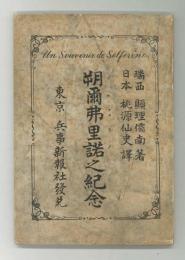 Un Souvenir de Solferino
瑞西 顕理儒南著
日本 桃源仙史譯
朔爾弗里諾之紀念
東京 兵事新報社發兌